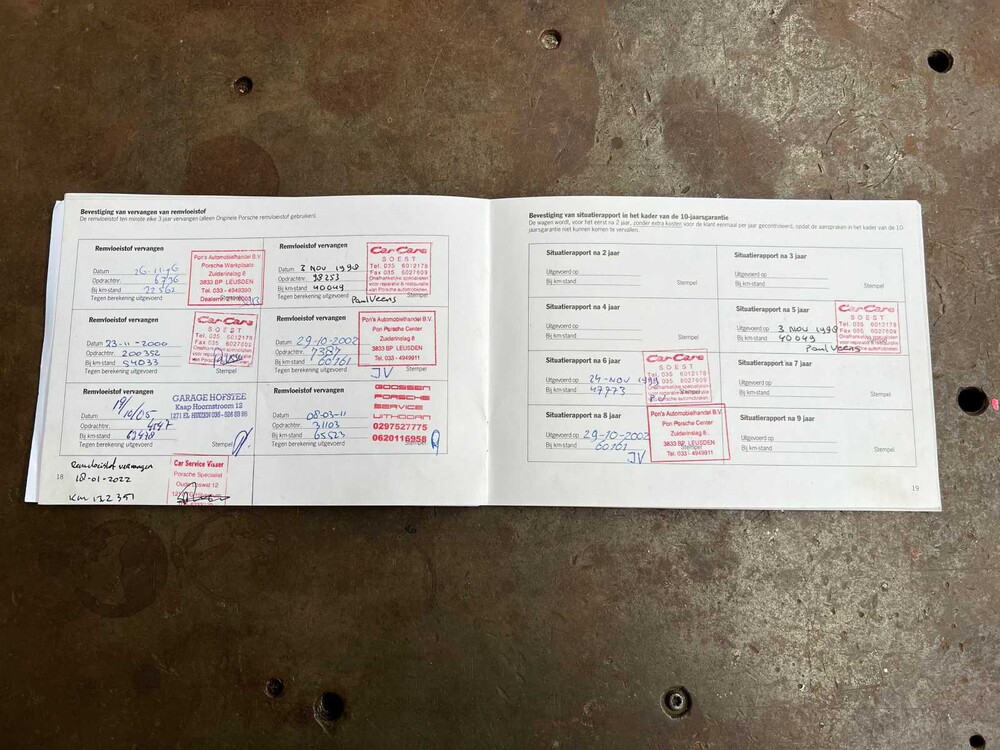 Bevestiging van vervangen van remvloeistof
De remvloeistof ten minste elke 3 jaar vervangen (alleen Originele Porsche remvloeistof gebruiken).
Remvloeistof vervangen
Datum 26-11-96
Opdrachtnr. 6736
Bij km-stand 22562
Tegen berekening uitgevoerd
Pon's Automobielhandel B.V.
Porsche Werkplaats
Zuiderinslag 8
3833 BP LEUSDEN
Tel. 033 - 4949300
Remvloeistof vervangen
Datum 3 NOV 1998
Opdrachtnr. 98253
Bij km-stand 40049
Tegen berekening uitgevoerd
Paul Veens
Stempel
Car Care
SOEST
Tel. 035 6012178
Fax 035 6027609
Onafhankelijke specialisten
voor reparatie & restauratie
van Porsche automobielen.
Remvloeistof vervangen
Datum 23-11-2000
Opdrachtnr. 200352
Bij km-stand 54033
Tegen berekening uitgevoerd
Car Care
SOEST
Tel. 035 6012178
Fax 035 6027609
Remvloeistof vervangen
Datum 29-10-2002
Opdrachtnr. 7387
Bij km-stand 60161
Tegen berekening uitgevoerd
JV
Pon's Automobielhandel B.V.
Pon Porsche Center
Zuiderinslag 8
3833 BP LEUSDEN
Tel. 033 - 4949911
Remvloeistof vervangen
Datum
Opdrachtnr. 4547
Bij km-stand
Tegen berekening uitgevoerd
Stempel
GARAGE HOFSTEE
Kaap Hoornstroom 12
1271 EL HUIZEN 035 - 526 89 86
Remvloeistof vervangen
Datum 08-03-11
Opdrachtnr. 31103
Bij km-stand 65523
Tegen berekening uitgevoerd
Stempel
GOOSSEN
PORSCHE
SERVICE
UITHOORN
0297527775
0620116958
Remvloeistof vervangen
18-01-2022
KM 132351
Car Service Visser
Porsche Specialist
18
Bevestiging van situatierapport in het kader van de 10-jaarsgarantie
De wagen wordt, voor het eerst na 2 jaar, zonder extra kosten voor de klant eenmaal per jaar gecontroleerd, opdat de aanspraken in het kader van de 10-
jaarsgarantie niet kunnen komen te vervallen.
Situatierapport na 2 jaar
Uitgevoerd op
Bij km-stand
Stempel
Situatierapport na 3 jaar
Uitgevoerd op
Bij km-stand
Stempel
Situatierapport na 4 jaar
Uitgevoerd op
Bij km-stand
Stempel
Situatierapport na 5 jaar
Uitgevoerd op 3 NOV 1998
Bij km-stand 40049
Paul Veens
Car Care
SOEST
Tel. 035 6012178
Fax 035 6027609
Onafhankelijke specialisten
voor reparatie & restauratie
van Porsche automobielen.
Situatierapport na 6 jaar
Uitgevoerd op 24-NOV 1999
Bij km-stand 47773
Car Care
SOEST
Tel. 035 6012178
Fax 035 6027609
Onafhankelijke specialisten
voor reparatie & restauratie
van Porsche automobielen.
Situatierapport na 7 jaar
Uitgevoerd op
Bij km-stand
Stempel
Situatierapport na 8 jaar
Uitgevoerd op 29-10-2002
Bij km-stand 60161
JV
Pon's Automobielhandel B.V.
Pon Porsche Center
Zuiderinslag 8
3833 BP LEUSDEN
Tel. 033 - 4949911
Situatierapport na 9 jaar
Uitgevoerd op
Bij km-stand
Stempel
19